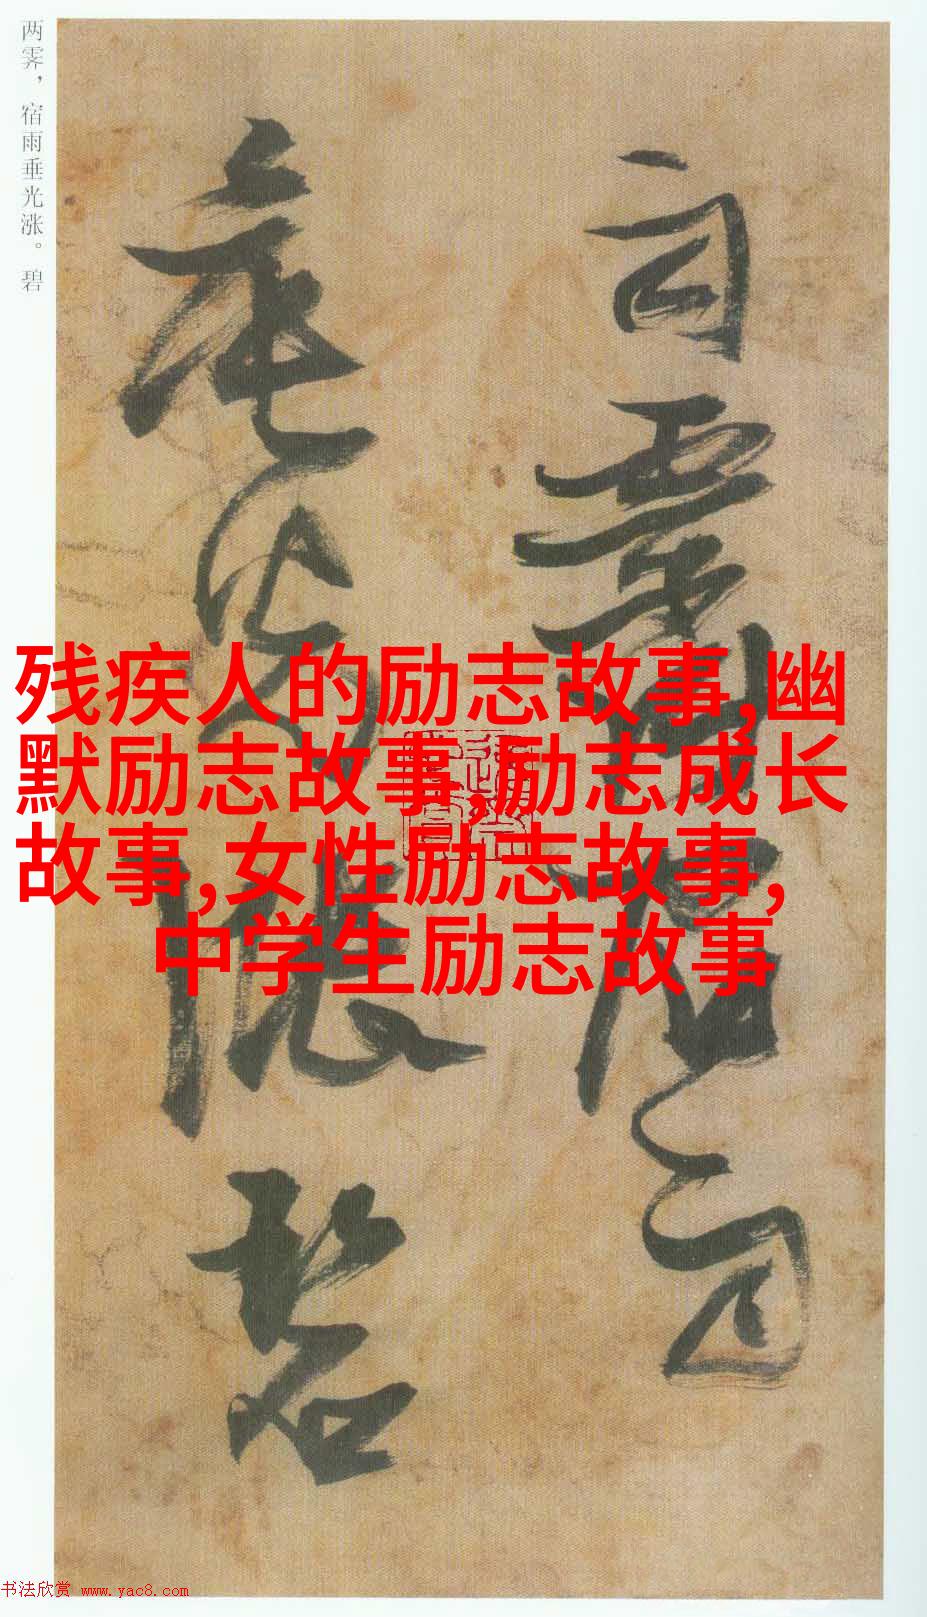 两霁，宿雨垂光涨。碧
两霁宿雨
垂光涨碧
残疾人的励志故事,幽
默励志故事,励志成长
故事,女性励志故事,
中学生励志故事
书法欣赏 www.yac8.com